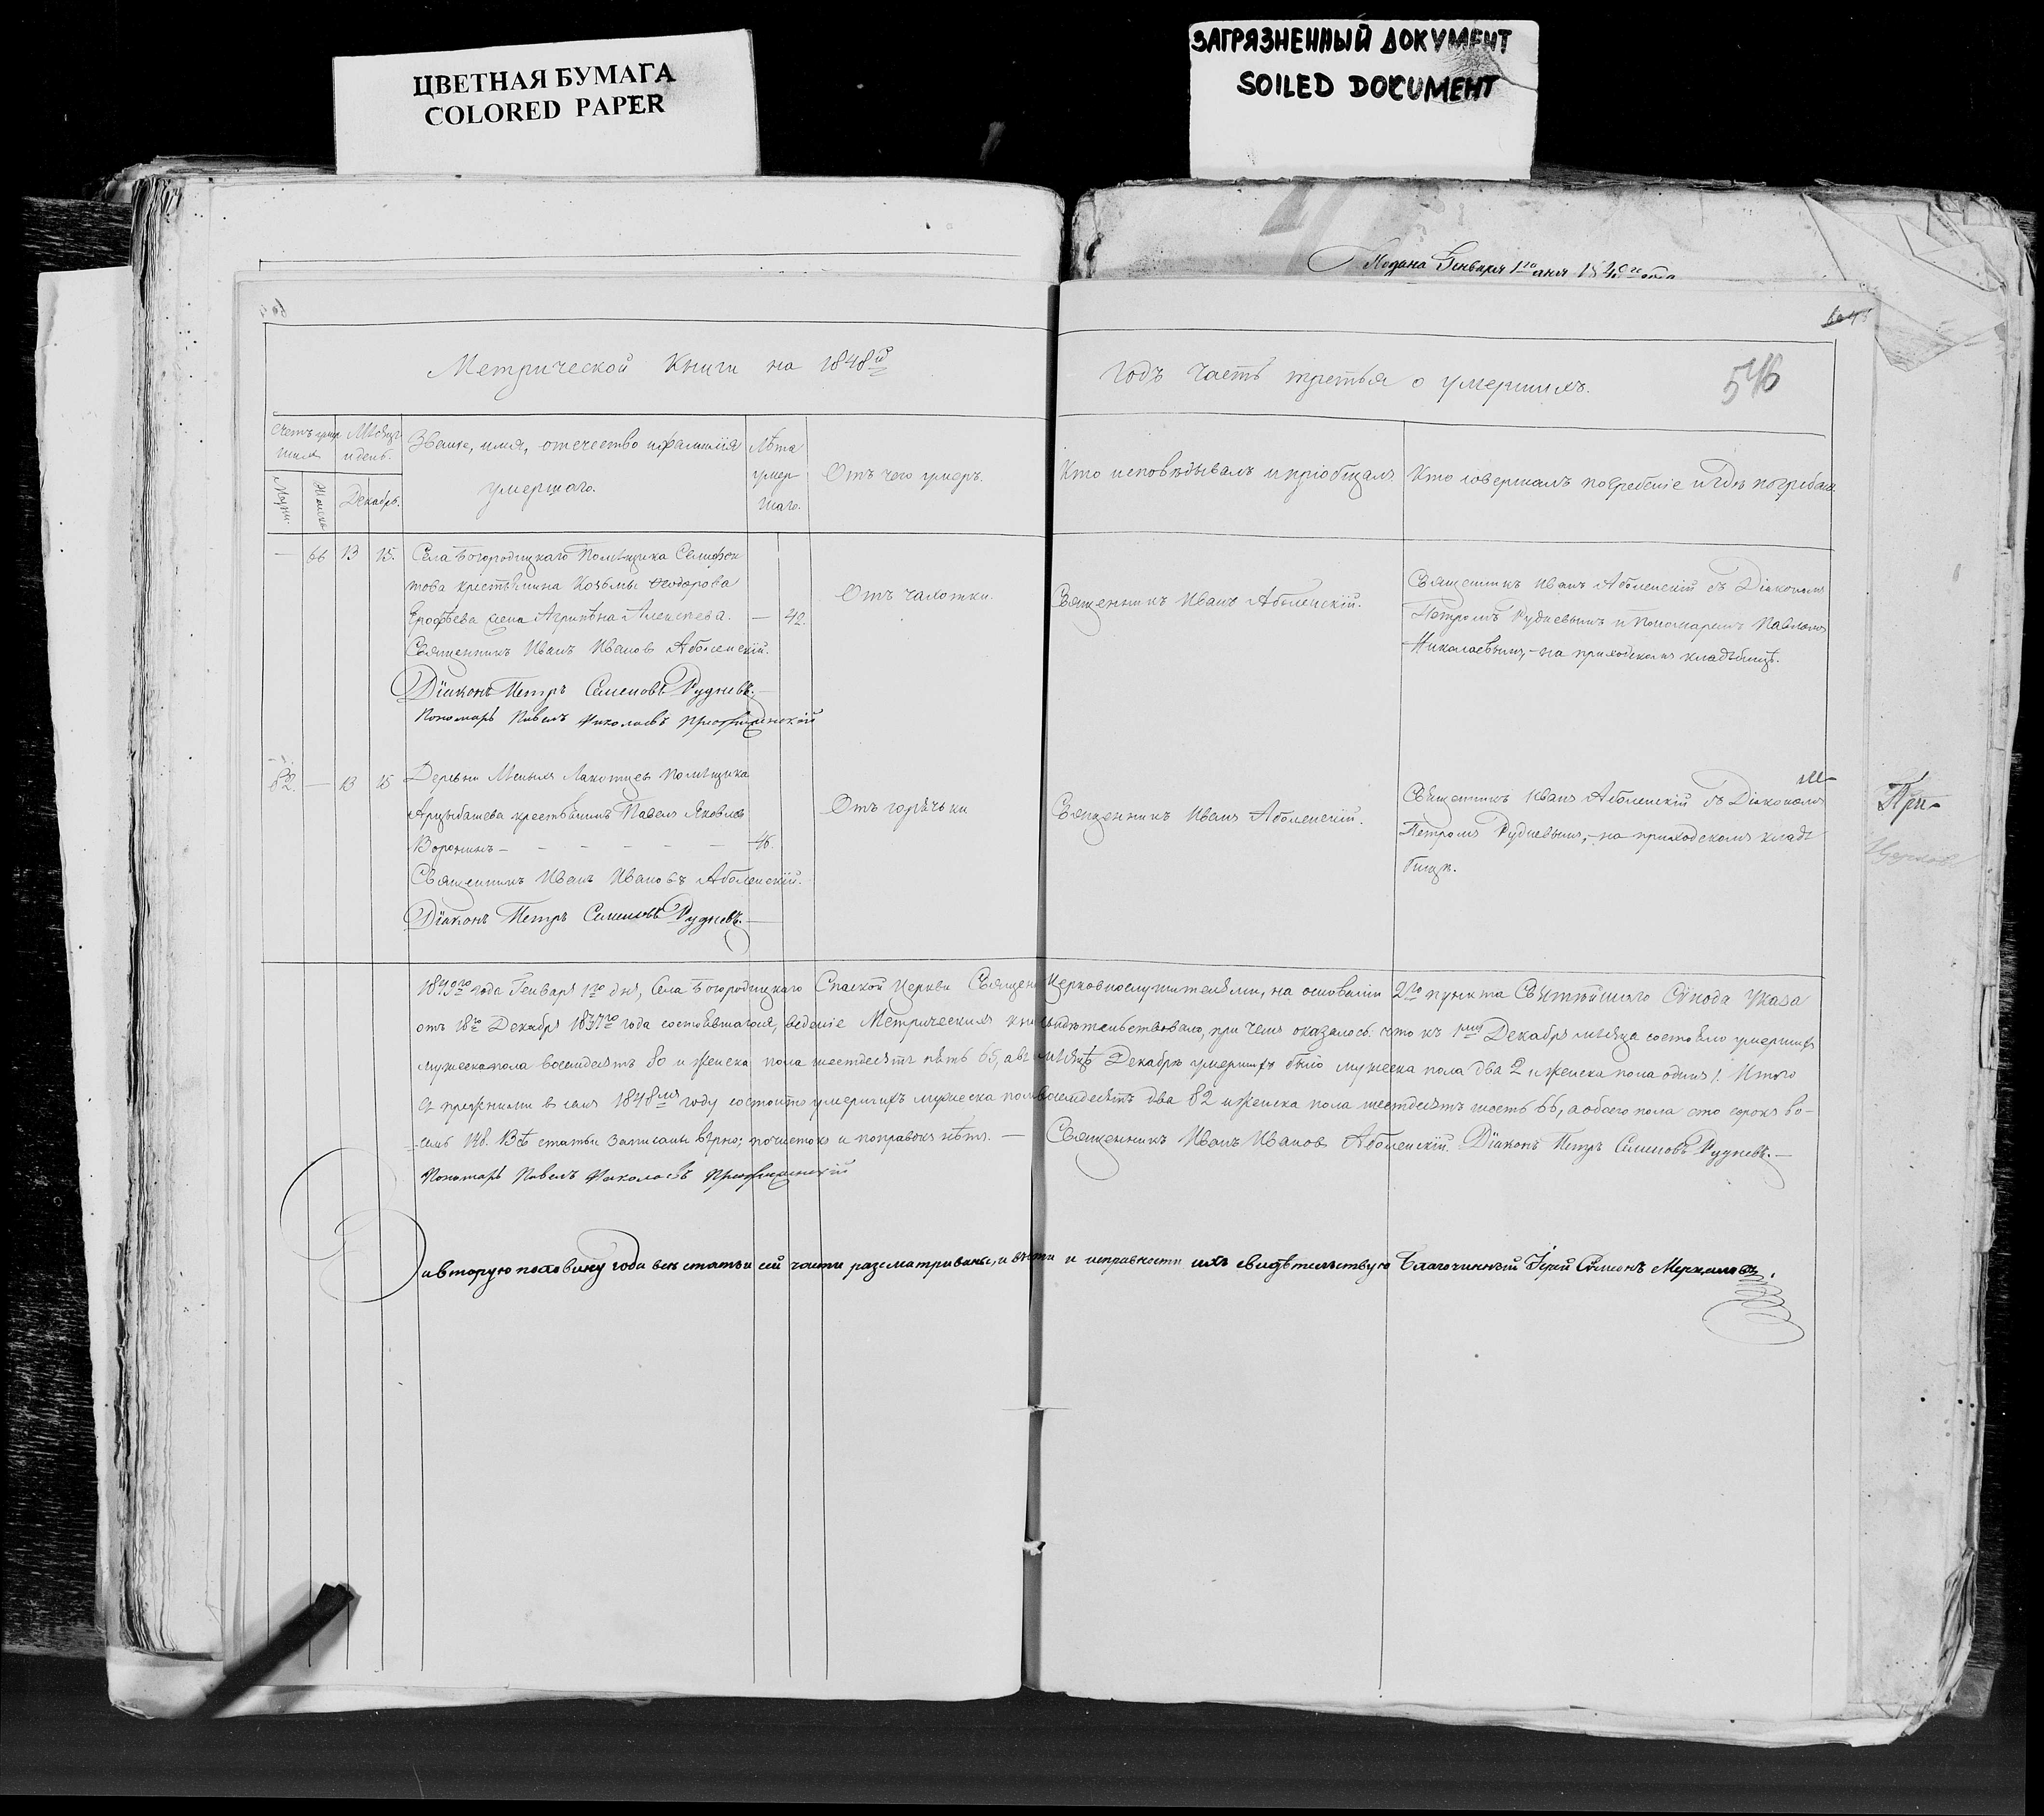 ЦВЕТНАЯ БУМАГА
COLORED PAPER
ЗАГРЯЗНЕННЫЙ ДОКУМЕНТ
SOILED DOCUMENT
Подана Генваря 1го дня
Метрической Книги на 1848й
годъ часть третья о умершихъ.
546
Счетъ умер
шихъ
Мѣсяцъ
и день.
Званіе, имя, отечество и фамилія
умершаго.
Лѣта
умер
шаго.
Отъ чего умеръ.
Кто исповѣдывалъ и пріобщалъ.
Кто совершалъ погребеніе и гдѣ погребены.
Мужес.
Женска
Декабрь.
— 66 13 15. Села Богородицкаго Помѣщика Селифон
това крестьянина Козьмы Ѳеодорова
Ерофѣева жена Агрипѣна Алексѣева. — 42.
Отъ чахотки.
Священникъ Иванъ Аболенскій.
Священникъ Иванъ Аболенскій съ Діакономъ
Петромъ Рудневымъ и Пономаремъ Павломъ
Николаевымъ, – на приходскомъ кладбищѣ.
Священникъ Иванъ Иванов Аболенскій.
Діаконъ Петръ Семеновъ Рудневъ. —
Пономарь Павелъ Николаевъ
82. — 13 15 Деревни Помѣщика
Арцыбашева крестьянинъ Павелъ Яковлев
Воронинъ – – – – – – 46.
Отъ горячьки
Священникъ Иванъ Аболенскій.
Священникъ Иванъ Аболенскій съ Діакономъ
Петромъ Рудневымъ, – на приходскомъ кладъ
бищѣ.
При-
Священникъ Иванъ Ивановъ Аболенскій.
Діаконъ Петръ Семеновъ Рудневъ. —
1849го года Генваря 1го дня, Села Богородицкаго Спаской Церкви Священно Церковнослужителями, на основаніи 2го пункта Святѣйшаго Сѵнода Указа
отъ 18го Декабря 1837го года состоявшагося, веденіе Метрическихъ свидѣтельствовало, при чемъ оказалось что къ 1му Декабря мѣсяца состояло умершихъ
мужеска пола восемдесятъ 80 и женска пола шестдесятъ пять 65, а въ мѣсяцѣ Декабрѣ умершихъ было мужеска пола два 2 и женска пола одинъ 1. Итого
съ прежними в семъ 1848мъ году состоитъ умершихъ мужеска пола восемдесятъ два 82 и женска пола шестдесятъ шесть 66, а обоего пола сто сорокъ во-
семь 148. Всѣ статьи записаны вѣрно; почистокъ и поправокъ нѣтъ. — Священникъ Иванъ Иванов Аболенскій. Діаконъ Петръ Семеновъ Рудневъ. —
Пономарь Павелъ Николаевъ
вторую половину года всѣ статьи сей части разсматриваны, и вѣрности и исправности ихъ свидѣтельствую Благочинный Іерей Сѵмеонъ